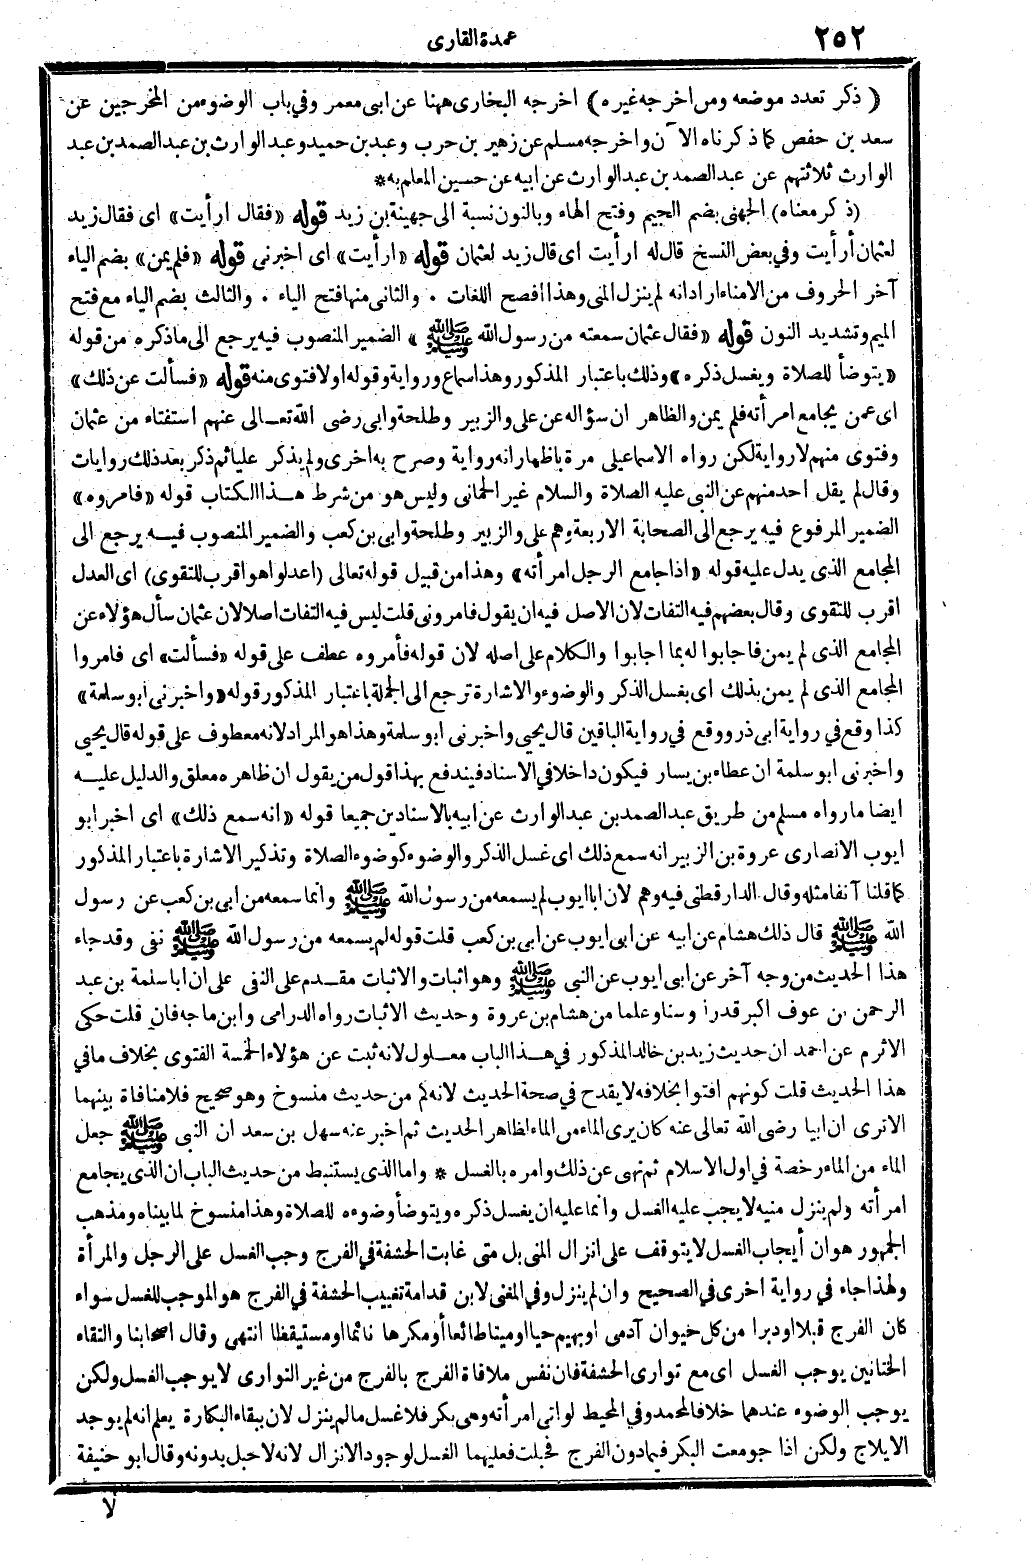 ٢٥٢
عمدة القارى
( ذكر تعدد موضعه ومن اخرجه غيره ) اخرجه البخارى ههنا عن ابى معمر وفي باب الوضوء من المخرجين عن
سعد بن حفص كما ذكرناه الآن واخرجه مسلم عن زهير بن حرب وعبد بن حميد وعبد الوارث بن عبد الصمد بن عبد
الوارث ثلاثتهم عن عبد الصمد بن عبد الوارث عن ابيه عن حسين المعلم به *
(ذكر معناه) الجهنى بضم الجيم وفتح الهاء وبالنون نسبة الى جهينة بن زيد قوله «فقال ارأيت» اى فقال زيد
لعثمان أرأيت وفي بعض النسخ قال له ارأيت اى قال زيد لعثمان قوله «ارأيت» اى اخبرنى قوله «فلم يمن» بضم الياء
آخر الحروف من الامناء اراد انه لم ينزل المنى وهذا افصح اللغات . والثانى منها فتح الياء . والثالث بضم الياء مع فتح
الميم وتشديد النون قوله «فقال عثمان سمعته من رسول الله ﷺ » الضمير المنصوب فيه يرجع الى ما ذكره من قوله
«يتوضأ للصلاة ويغسل ذكره» وذلك باعتبار المذكور وهذا سماع ورواية وقوله اولا فتوى منه قوله «فسألت عن ذلك»
اى عمن يجامع امرأته فلم يمن والظاهر ان سؤاله عن على والزبير وطلحة وابى رضى الله تعالى عنهم استفتاء من عثمان
وفتوى منهم لا رواية لكن رواه الاسماعيلى مرة باظهار انه رواية وصرح به اخرى ولم يذكر عليا ثم ذكر بعد ذلك روايات
وقال لم يقل احد منهم عن النبى عليه الصلاة والسلام غير الحمانى وليس هو من شرط هذا الكتاب قوله «فامروه»
الضمير المرفوع فيه يرجع الى الصحابة الاربعة وهم على والزبير وطلحة وابى بن كعب والضمير المنصوب فيه يرجع الى
المجامع الذى يدل عليه قوله «اذا جامع الرجل امرأته» وهذا من قبيل قوله تعالى (اعدلوا هو اقرب للتقوى) اى العدل
اقرب للتقوى وقال بعضهم فيه التفات لان الاصل فيه ان يقول فامرونى قلت ليس فيه التفات اصلا لان عثمان سأل هؤلاء عن
المجامع الذى لم يمن فاجابوا له بما اجابوا والكلام على اصله لان قوله فأمروه عطف على قوله «فسألت» اى فامروا
المجامع الذى لم يمن بذلك اى بغسل الذكر والوضوء والاشارة ترجع الى الجملة باعتبار المذكور قوله «واخبرنى ابو سلمة»
كذا وقع في رواية ابى ذر ووقع في رواية الباقين قال يحيى واخبرنى ابو سلمة وهذا هو المراد لانه معطوف على قوله قال يحيى
واخبرنى ابو سلمة ان عطاء بن يسار فيكون داخلا في الاسناد فيندفع بهذا قول من يقول ان ظاهره معلق والدليل عليه
ايضا ما رواه مسلم من طريق عبد الصمد بن عبد الوارث عن ابيه بالاسنادين جميعا قوله «انه سمع ذلك» اى اخبر ابو
ايوب الانصارى عروة بن الزبير انه سمع ذلك اى غسل الذكر والوضوء كوضوء الصلاة وتذكير الاشارة باعتبار المذكور
كما قلنا آنفا مثله وقال الدارقطنى فيه وهم لان ابا ايوب لم يسمعه من رسول الله ﷺ وانما سمعه من ابى بن كعب عن رسول
الله ﷺ قال ذلك هشام عن ابيه عن ابى ايوب عن ابى بن كعب قلت قوله لم يسمعه من رسول الله ﷺ نفى وقد جاء
هذا الحديث من وجه آخر عن ابى ايوب عن النبى ﷺ وهو اثبات والاثبات مقدم على النفى على ان ابا سلمة بن عبد
الرحمن بن عوف اكبر قدرا وسنا وعلما من هشام بن عروة وحديث الاثبات رواه الدرامى وابن ماجه فان قلت حكى
الاثرم عن احمد ان حديث زيد بن خالد المذكور في هذا الباب معلول لانه ثبت عن هؤلاء الخمسة الفتوى بخلاف ما في
هذا الحديث قلت كونهم افتوا بخلافه لا يقدح في صحة الحديث لانه كم من حديث منسوخ وهو صحيح فلا منافاة بينهما
الاترى ان ابيا رضى الله تعالى عنه كان يرى الماء من الماء لظاهر الحديث ثم اخبر عنه سهل بن سعد ان النبى ﷺ جعل
الماء من الماء رخصة في اول الاسلام ثم نهى عن ذلك وامره بالغسل * واما الذى يستنبط من حديث الباب ان الذى يجامع
امرأته ولم ينزل منيه لا يجب عليه الغسل وانما عليه ان يغسل ذكره ويتوضأ وضوءه للصلاة وهذا منسوخ لما بيناه ومذهب
الجمهور هو ان أيجاب الغسل لا يتوقف على انزال المنى بل متى غابت الحشفة في الفرج وجب الغسل على الرجل والمرأة
ولهذا جاء في رواية اخرى في الصحيح وان لم ينزل وفي المغنى لابن قدامة تغييب الحشفة في الفرج هو الموجب للغسل سواء
كان الفرج قبلا او دبرا من كل حيوان آدمى او بهيم حيا او ميتا طائعا أو مكرها نائما او مستيقظا انتهى وقال اصحابنا والتقاء
الختانين يوجب الغسل اى مع توارى الحشفة فان نفس ملاقاة الفرج بالفرج من غير التوارى لا يوجب الغسل ولكن
يوجب الوضوء عندهما خلافا لمحمد وفي المحيط لو اتى امرأته وهى بكر فلا غسل ما لم ينزل لان ببقاء البكارة يعلم انه لم يوجد
الايلاج ولكن اذا جومعت البكر فيما دون الفرج فحبلت فعليهما الغسل لوجود الانزال لانه لا حبل بدونه وقال ابو حنيفة
لا